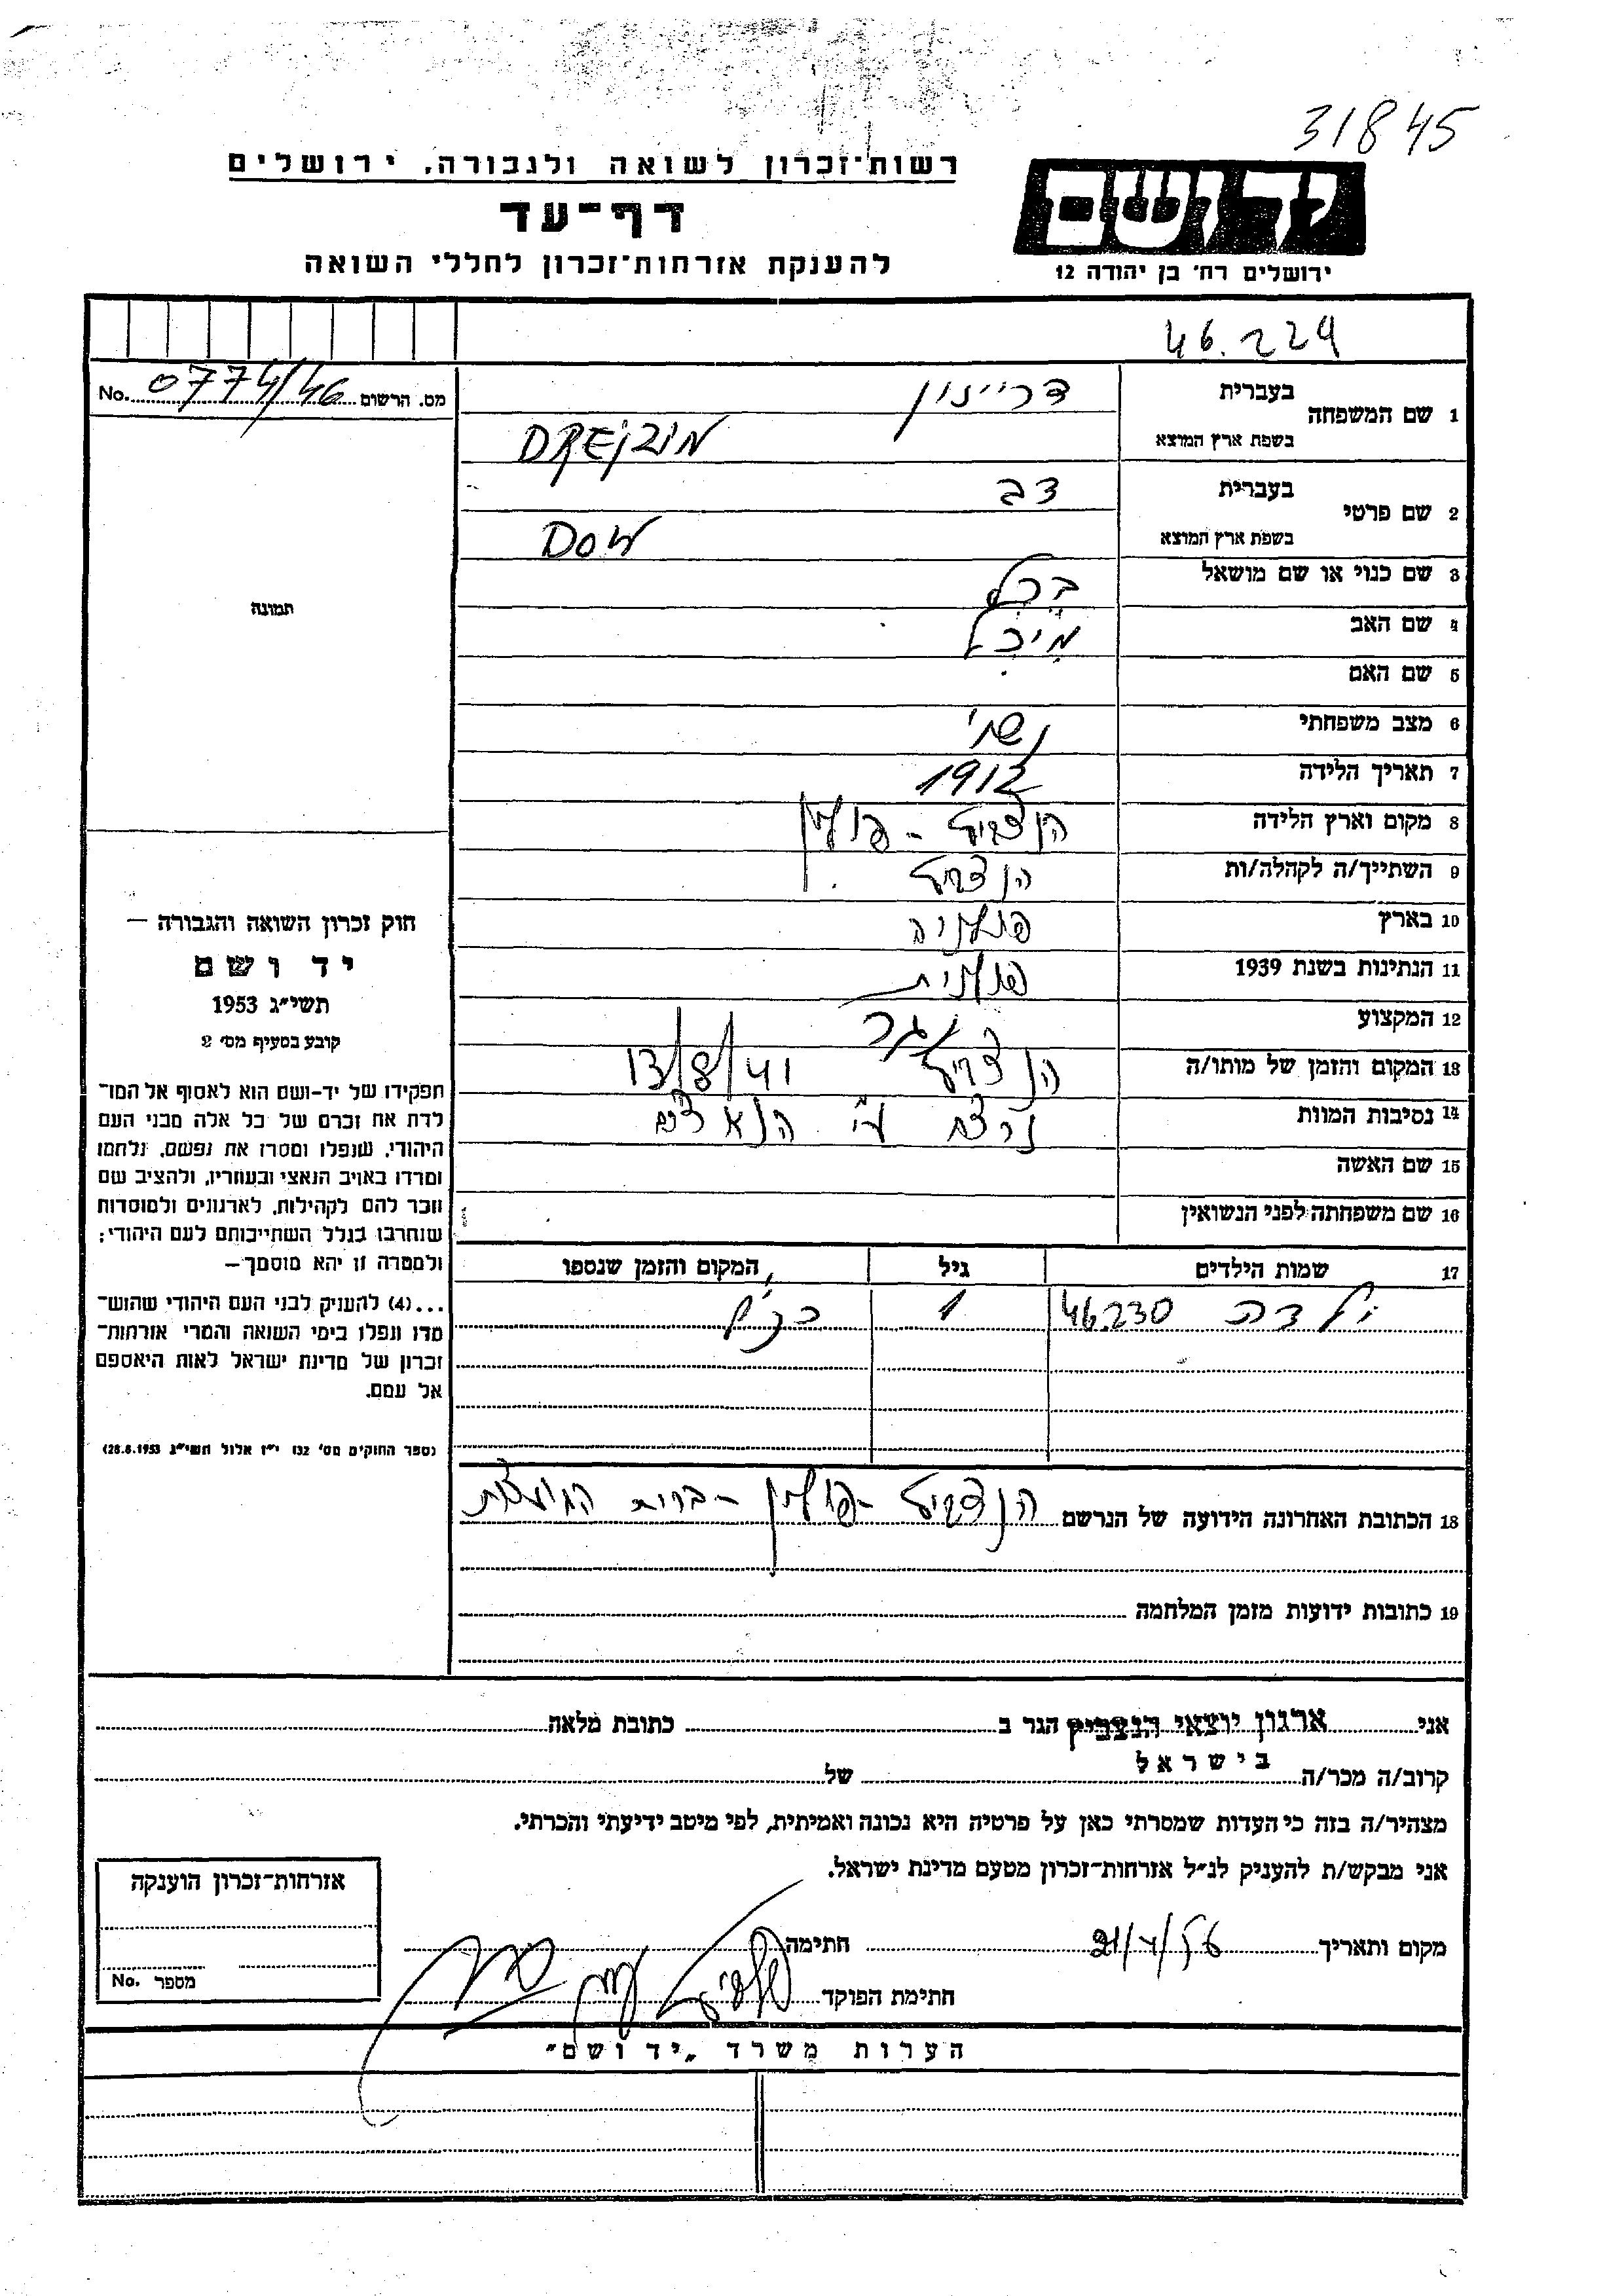 31845
רשות־זכרון לשואה ולגבורה, ירושלים
דף־עד
להענקת אזרחות־זכרון לחללי השואה
יד ושם
ירושלים רח׳ בן יהודה 12
46.229
מס. הרשום 0774/46 No.
1 שם המשפחה
בעברית דרייזין
בשפת ארץ המוצא DREJZIN
2 שם פרטי
בעברית דב
בשפת ארץ המוצא DOW
3 שם כנוי או שם מושאל
4 שם האב
5 שם האם
6 מצב משפחתי נשוי
7 תאריך הלידה 1912
8 מקום וארץ הלידה הנצביץ - פולין
9 השתייך/ה לקהלה/ות הנצביץ
10 בארץ פולניה
11 הנתינות בשנת 1939 פולנית
12 המקצוע
13 המקום והזמן של מותו/ה הנצביץ 13/8/41
14 נסיבות המוות נרצח ע״י הנאצים
15 שם האשה
16 שם משפחתה לפני הנשואין
17 שמות הילדים גיל המקום והזמן שנספו
ילדה 46.230 1 כנ״ל
18 הכתובת האחרונה הידועה של הנרשם הנצביץ - פולין - ברית המועצות
19 כתובות ידועות מזמן המלחמה
תמונה
חוק זכרון השואה והגבורה —
יד ושם
תשי״ג 1953
קובע בסעיף מס׳ 2
תפקידו של יד־ושם הוא לאסוף אל המו־
לדת את זכרם של כל אלה מבני העם
היהודי, שנפלו ומסרו את נפשם, נלחמו
ומרדו באויב הנאצי ובעוזריו, ולהציב שם
וזכר להם לקהילות, לארגונים ולמוסדות
שנחרבו בגלל השתייכותם לעם היהודי;
ולמטרה זו יהא מוסמך—
...(4) להעניק לבני העם היהודי שהוש־
מדו ונפלו בימי השואה והמרי אזרחות־
זכרון של מדינת ישראל לאות היאספם
אל עמם.
(ספר החוקים מס׳ 132 י״ז אלול תשי״ג 28.8.1953)
אני ארגון יוצאי הנצביץ הגר ב כתובת מלאה
בישראל
קרוב/ה מכר/ה של
מצהיר/ה בזה כי העדות שמסרתי כאן על פרטיה היא נכונה ואמיתית, לפי מיטב ידיעתי והכרתי.
אני מבקש/ת להעניק לנ״ל אזרחות־זכרון מטעם מדינת ישראל.
מקום ותאריך 21/4/56 חתימה
חתימת הפוקד
אזרחות־זכרון הוענקה
מספר No.
הערות משרד „יד ושם״